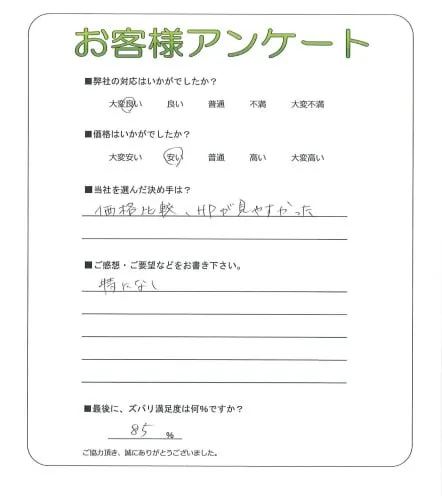 お客様アンケート
■弊社の対応はいかがでしたか？
大変良い 良い 普通 不満 大変不満
■価格はいかがでしたか？
大変安い 安い 普通 高い 大変高い
■当社を選んだ決め手は？
価格比較、HPが見やすかった
■ご感想・ご要望などをお書き下さい。
特になし
■最後に、ズバリ満足度は何％ですか？
85 %
ご協力頂き、誠にありがとうございました。